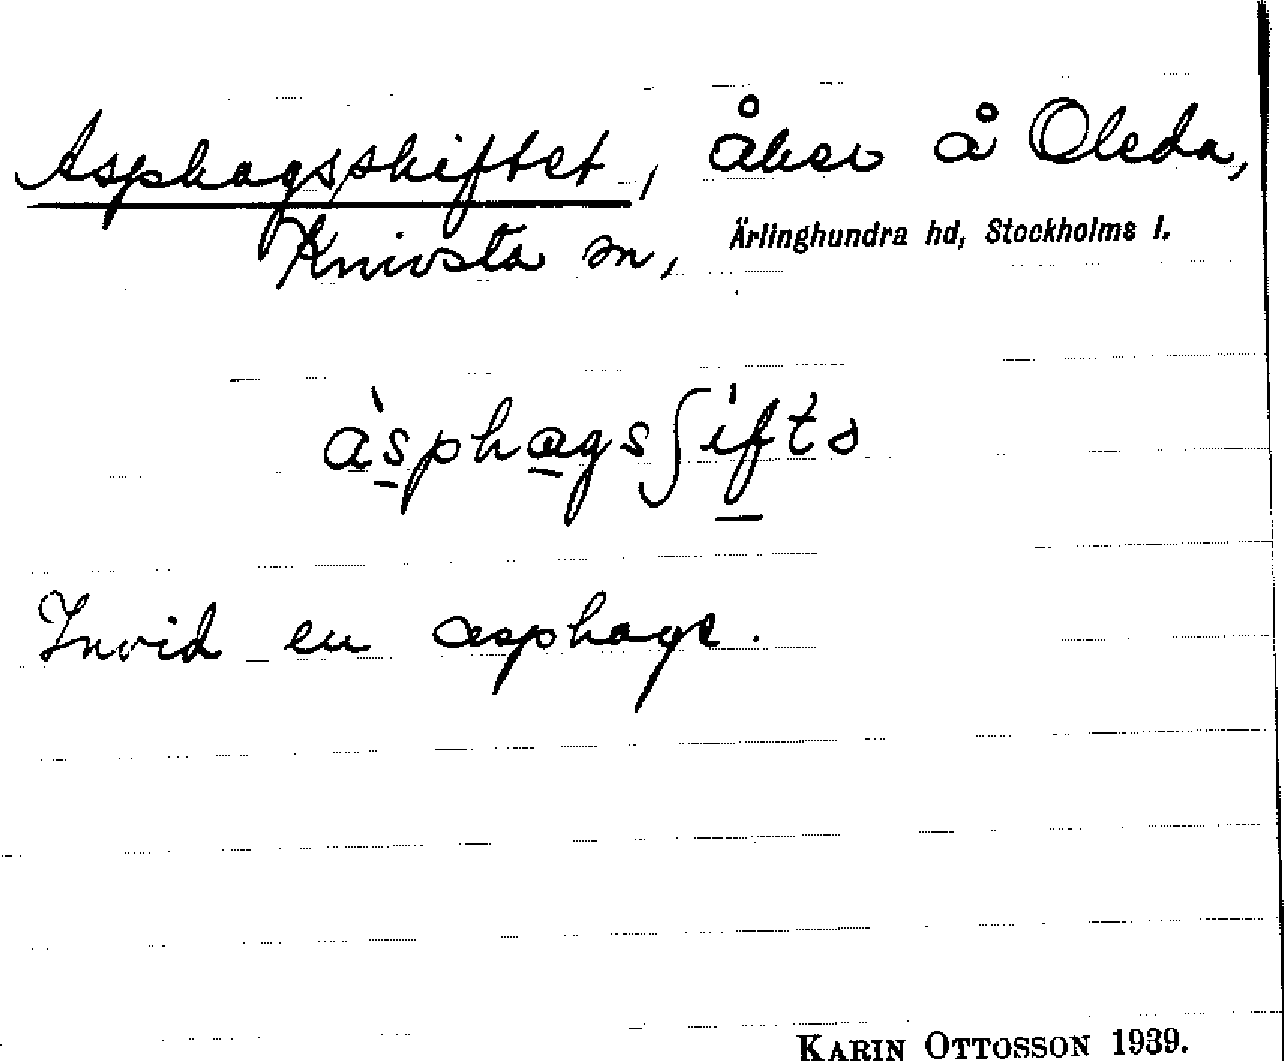 Asphagsskiftet, åker å Oleda,
Knivsta sn, Ärlinghundra hd, Stockholms l.
àsphagsʃìftə
Invid en asphage.
KARIN OTTOSSON 1939.